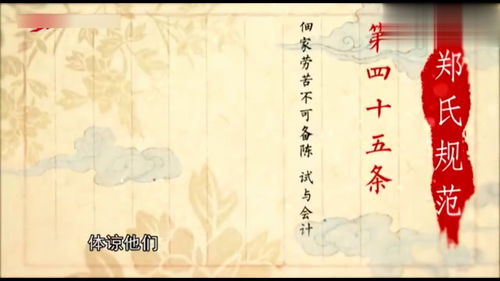 郑氏规范
第四十五条
佃家劳苦不可备陈 试与会计
体谅他们